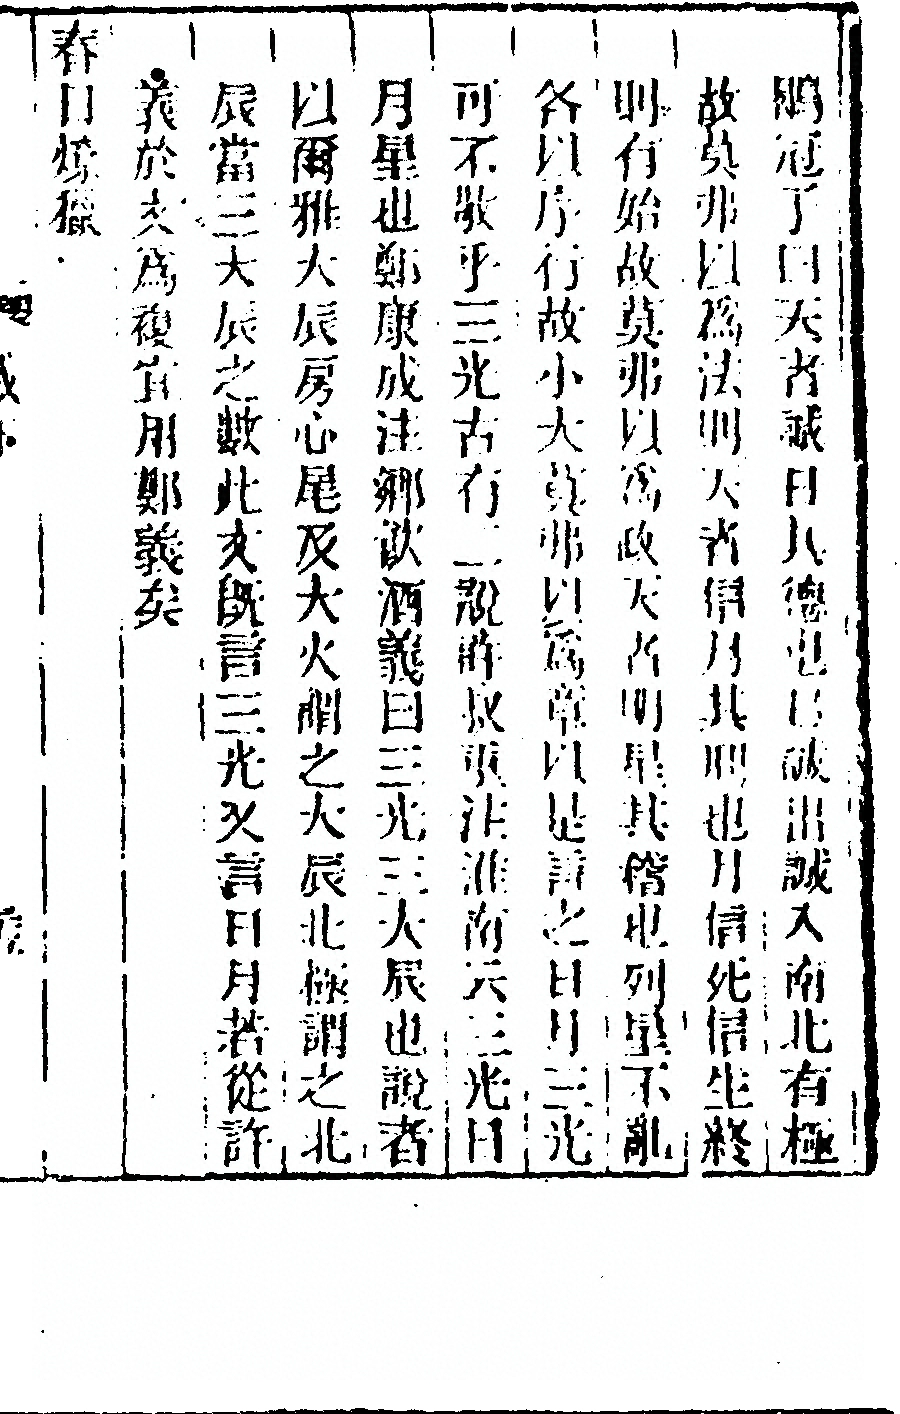 鶡冠子曰天者誠其日德也日誠出誠入南北有極
故莫弗以爲法則天者信其月刑也月信死信生終
則有始故莫弗以爲政天者明星其稽也列星不亂
各以序行故小大莫弗以爲章以是言之日月三光
可不敬乎三光古有二說許叔重注淮南云三光日
月星也鄭康成注鄉飲酒義曰三光三大辰也說者
以爾雅大辰房心尾及大火謂之大辰北極謂之北
辰當三大辰之數此文旣言三光又言日月若從許
義於文爲複宜用鄭義矣
春日燎獵